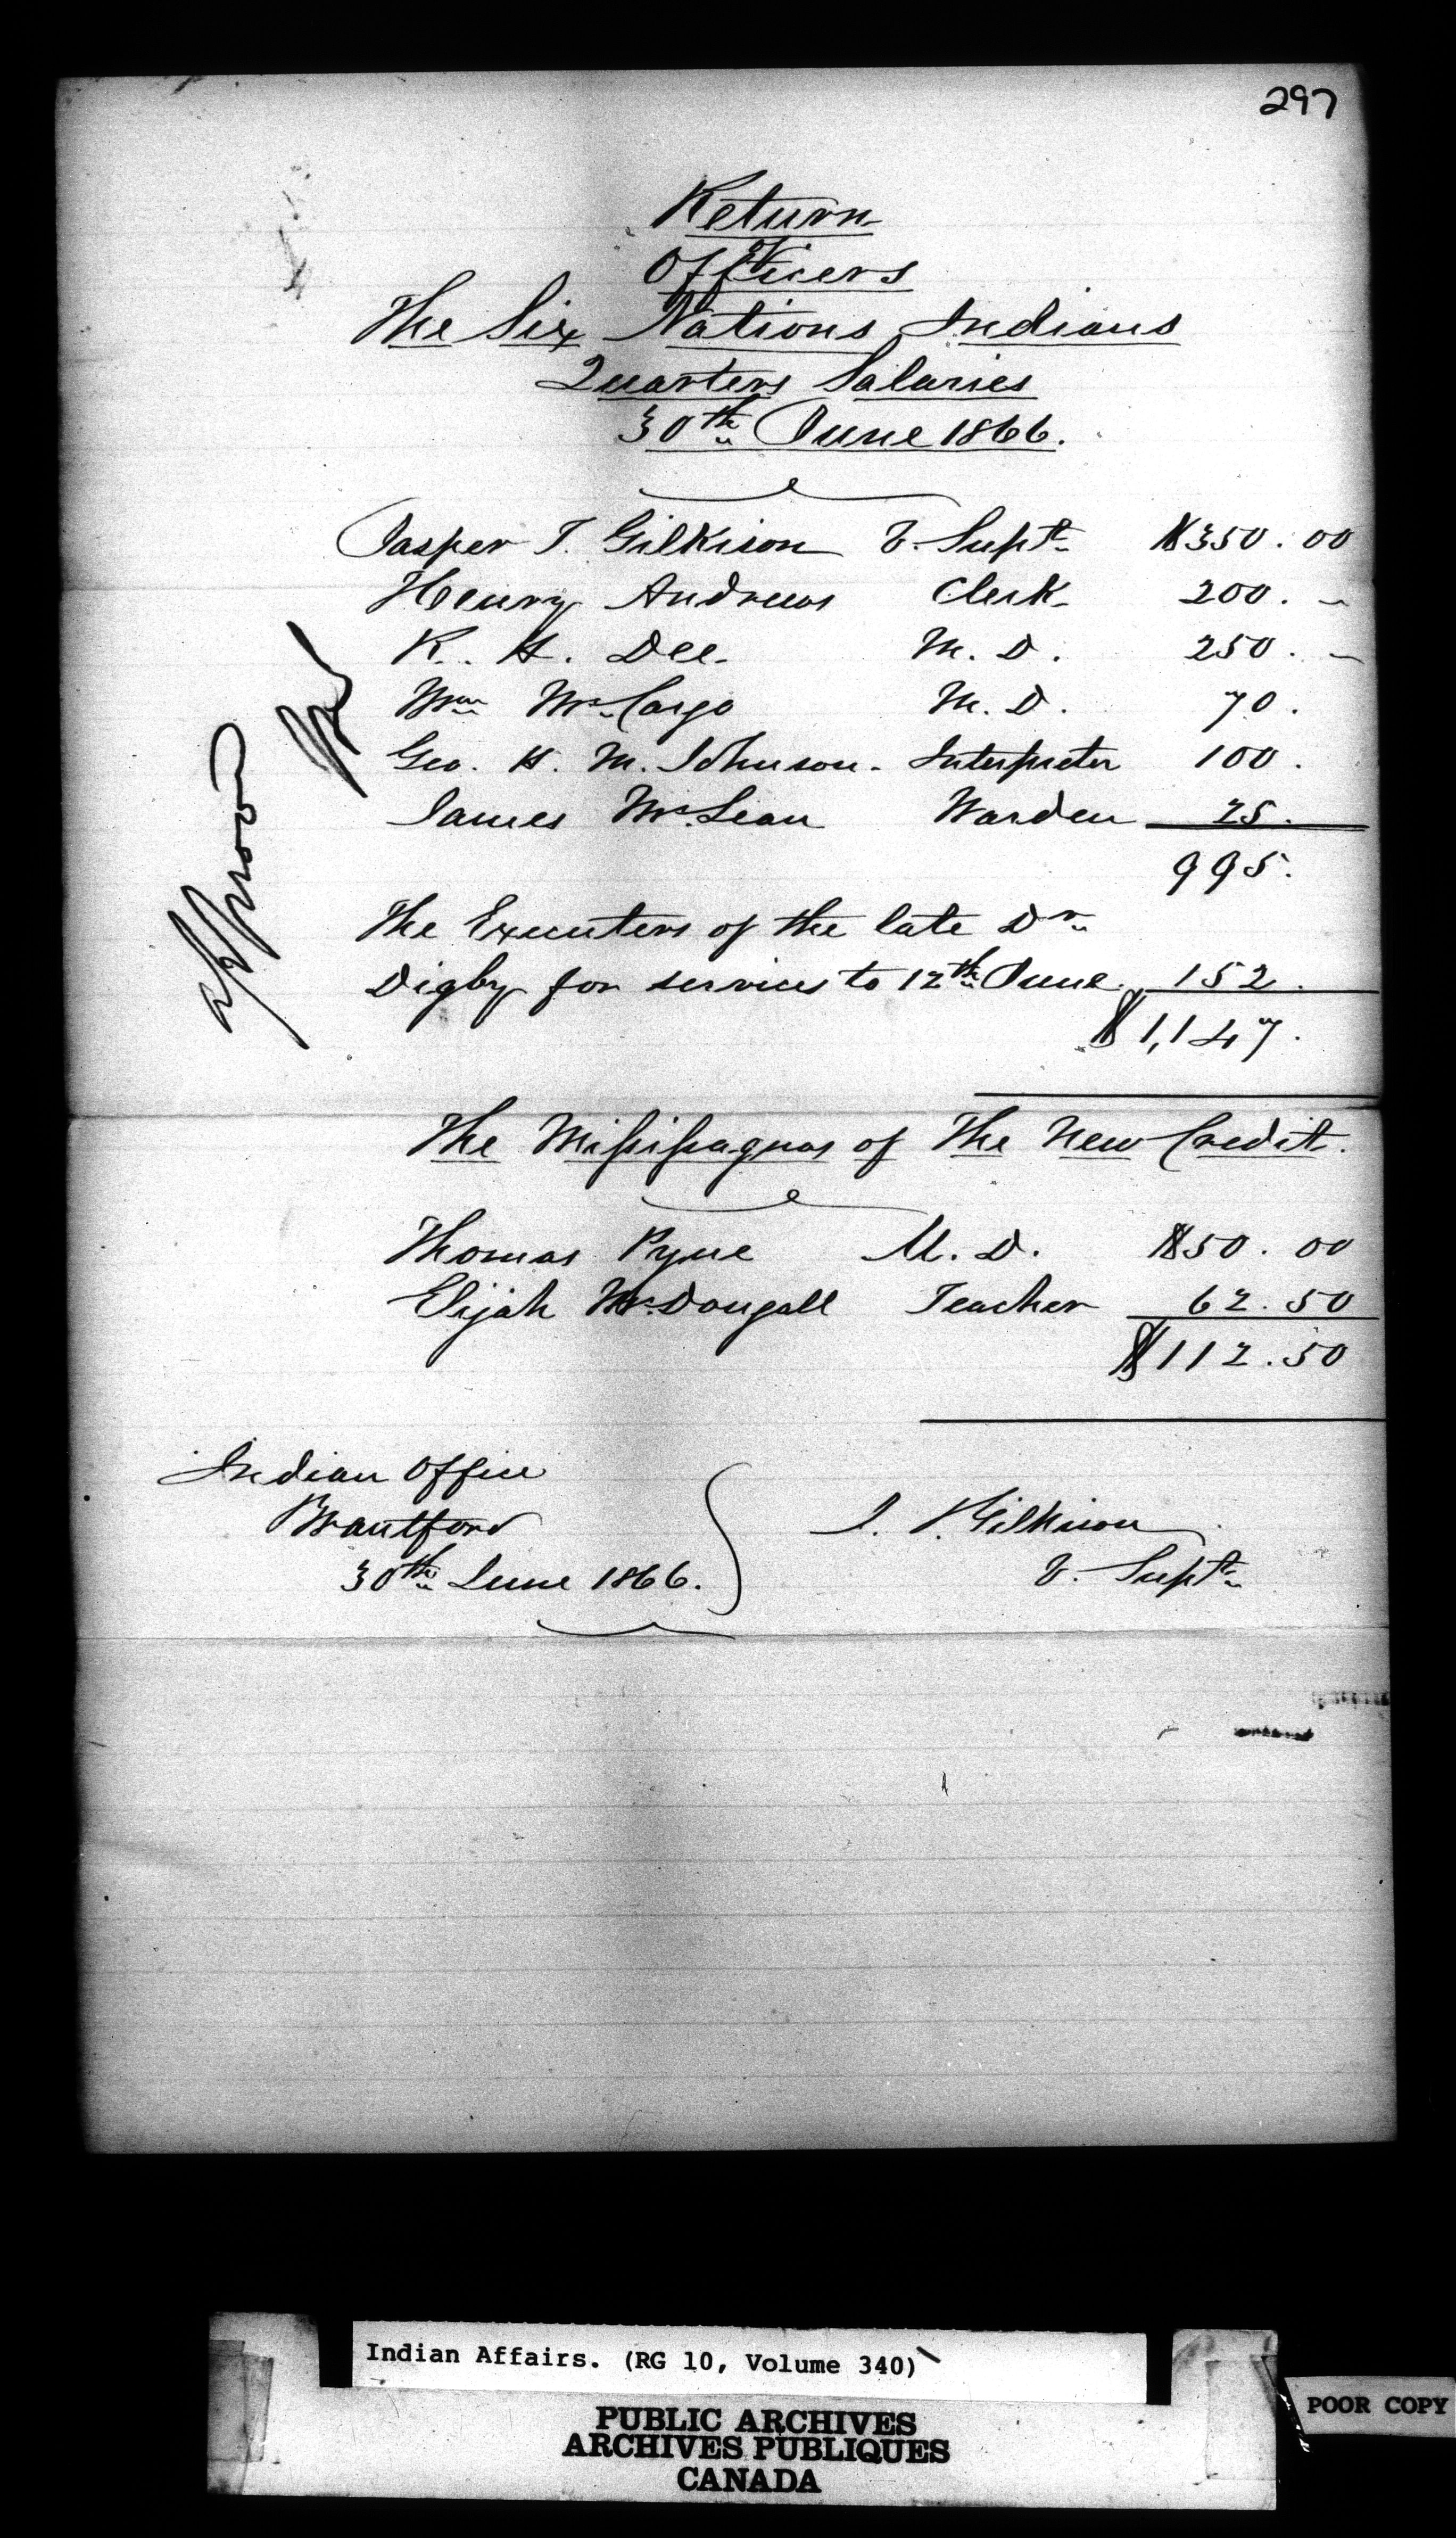 297
Return
of
Officers
The Six Nations Indians
Quarters Salaries
30th June 1866.
Jasper T. Gilkison V. Supt. $350.00
Henry Andrews Clerk 200. -
R. H. Dee. M. D. 250. -
Wm McCargo M. D. 70.
Geo. H. M. Johnson. Interpreter 100.
James McLean Warden 25.
995.
The Executers of the late Dr.
Digby for services to 12th June. 152.
$1,147.
approved
The Missisaguas of The New Credit.
Thomas Pyne M. D. $50.00
Elijah McDougall Teacher 62.50
$112.50
Indian Office
Brantford
30th June 1866.
J. T. Gilkison
V. Supt.
Indian Affairs. (RG 10, Volume 340)
PUBLIC ARCHIVES
ARCHIVES PUBLIQUES
CANADA
POOR COPY